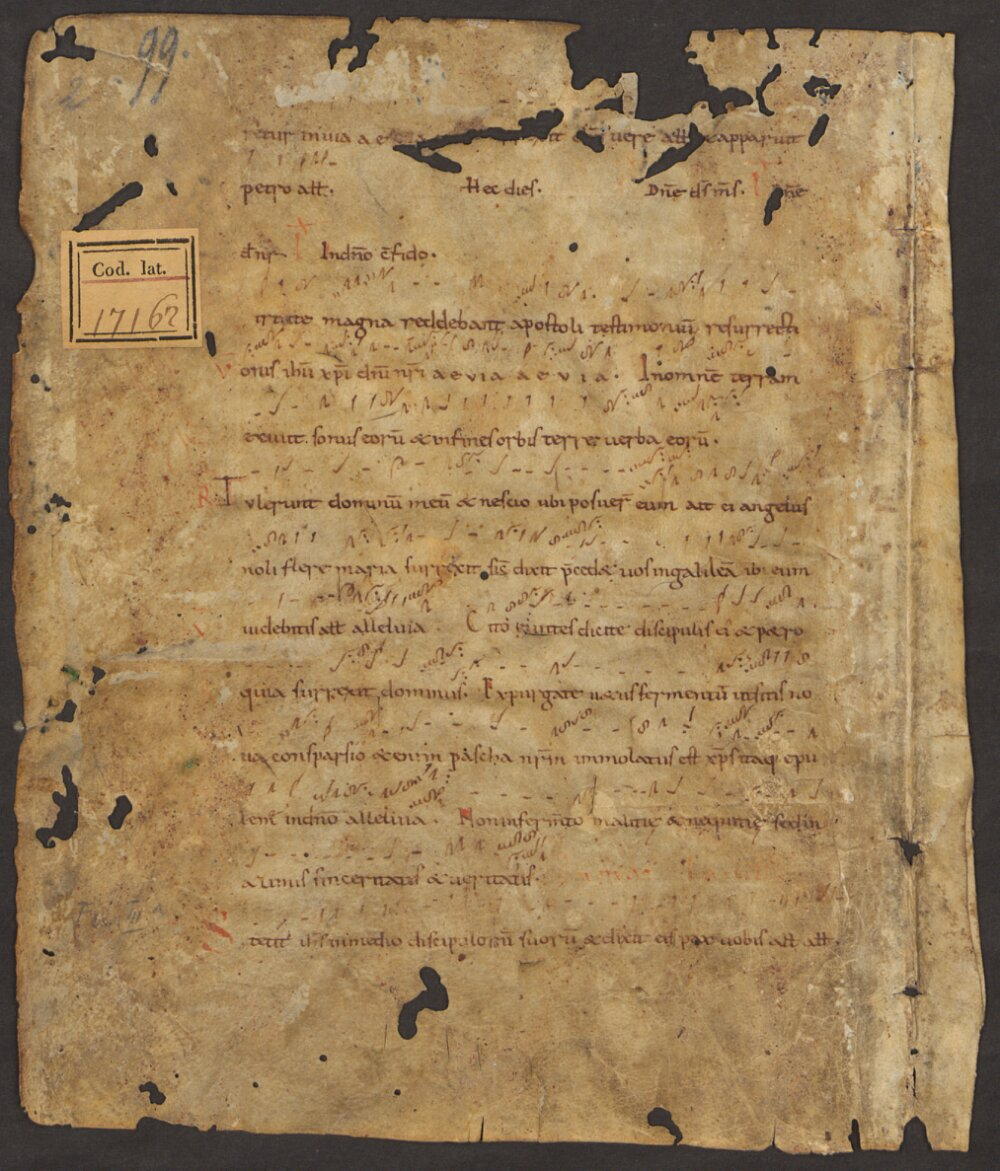 2 99.
in uia a e uere all & apparuit
petro all. Hec dies. Dn̄e d̄s m̄s.
Indn̄o c̄fido.
Cod. lat.
17162
magna reddebant apostoli testimoniū resurrecti
onis ihū xp̄i dn̄i nr̄i a e v i a a e v i a . In omnē terram
exiuit sonus eorū & in fines orbis terre uerba eorū.
R Tulerunt dominū meū & nescio ubi posuer̄ eum ait ei angelus
noli flere maria surrexit sic̄ dixit p̄cedet uos in galileā ibi eum
uidebitis all alleluia . Cito euntes dicite discipulis ei & petro
quia surrexit dominus. Expurgate uetus fermentū ut sitis no
ua consparsio & enim pascha nr̄m immolatus est xp̄s itaq epu
lem̄ in dn̄o alleluia . Non in ferm̄to malitie & nequitie sed in
azimis sinceritatis & ueritatis.
tetit ih̄s in medio discipulorū suorū & dixit eis pax uobis all all.